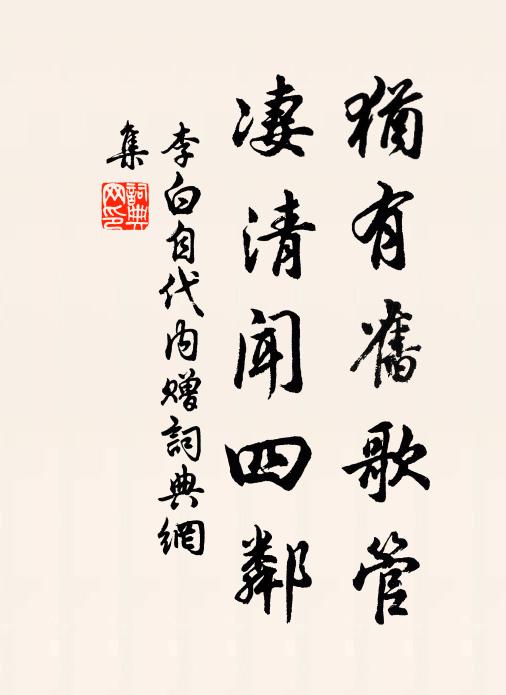 猶有舊歌管
淒清聞四鄰
李白自代內贈詞典網
集
詞典網印